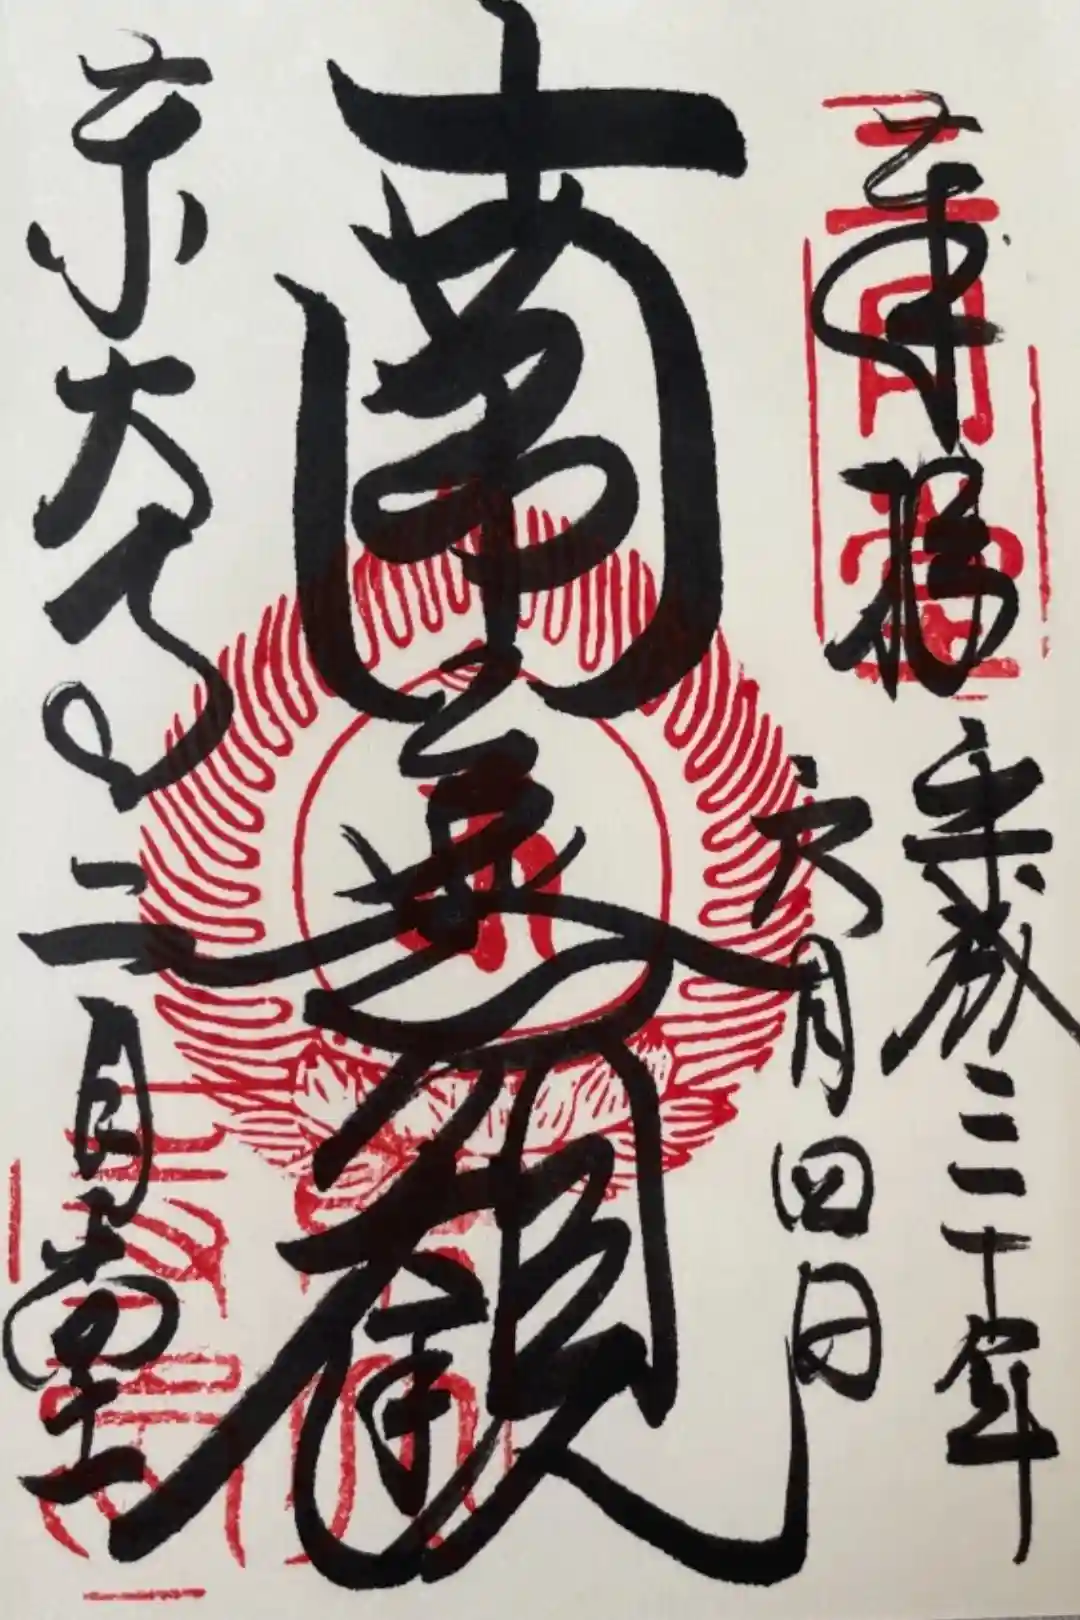 奉拝
平成三十年
六月四日
南無観
東大寺
二月堂
二月堂